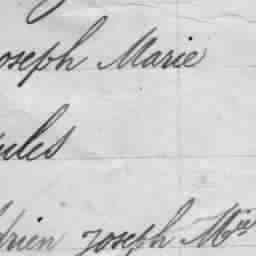 oseph Marie
ules
drien joseph M^ie